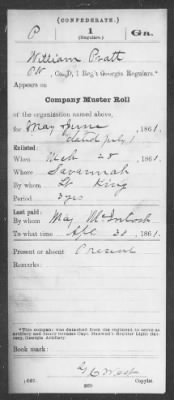 (CONFEDERATE.)
P 1 Ga.
(Regulars.)
William Pratt
Pvt, Co. D, 1 Reg't Georgia Regulars.*
Appears on
Company Muster Roll
of the organization named above,
for May & June, 1861.
dated July 1
Enlisted:
When Mch 28, 1861.
Where Savannah
By whom Lt King
Period 3 yrs
Last paid:
By whom Maj McIntosh
To what time Apl 30, 1861.
Present or absent Present
Remarks:
*This company was detached from the regiment to serve as
artillery and finally became Capt. Maxwell's Regular Light Battery,
Georgia Artillery.
Book mark:
(642) Copyist.